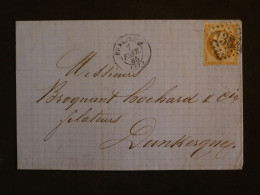 Messieurs
Broquant Hochard & Cie
filateurs
Dunkerque